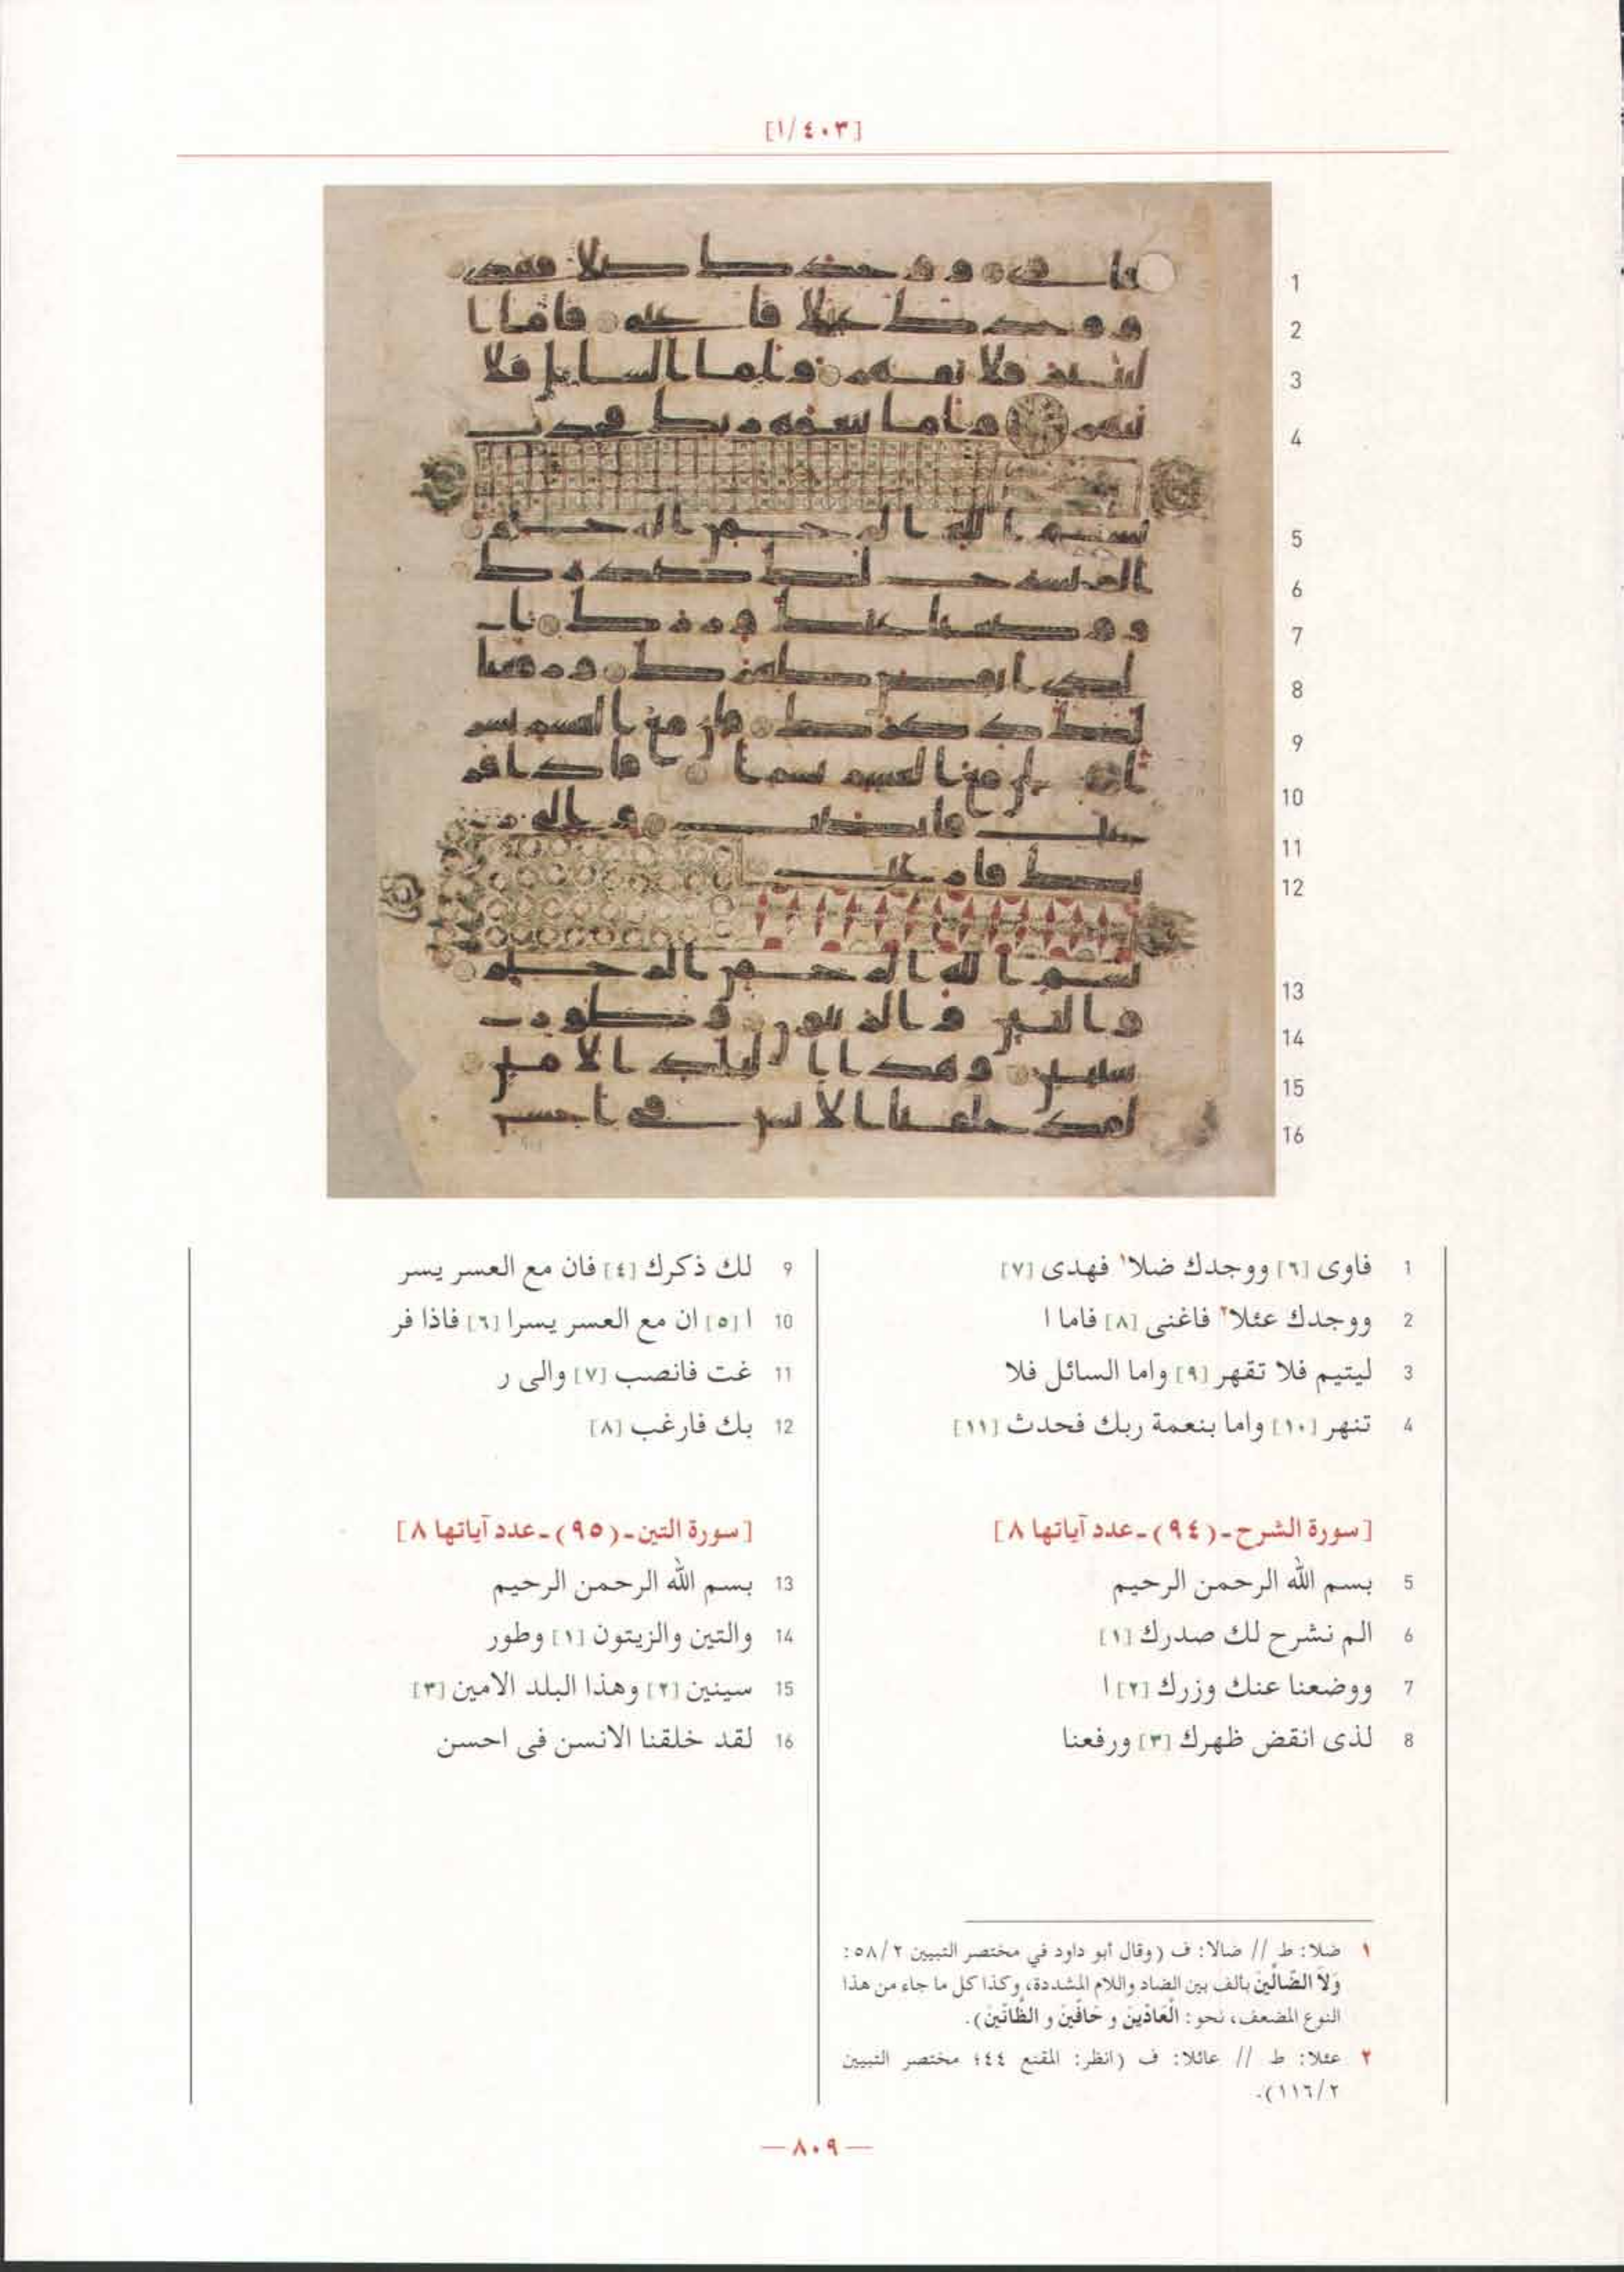 [١/٤٠٣]
1
2
3
4
5
6
7
8
9
10
11
12
13
14
15
16
1 فاوى [٦] ووجدك ضلا١ فهدى [٧]
2 ووجدك عئلا٢ فاغنى [٨] فاما ا
3 ليتيم فلا تقهر [٩] واما السائل فلا
4 تنهر [١٠] واما بنعمة ربك فحدث [١١]
[سورة الشرح-(٩٤)-عدد آياتها ٨]
5 بسم الله الرحمن الرحيم
6 الم نشرح لك صدرك [١]
7 ووضعنا عنك وزرك [٢] ا
8 لذى انقض ظهرك [٣] ورفعنا
9 لك ذكرك [٤] فان مع العسر يسر
10 ا [٥] ان مع العسر يسرا [٦] فاذا فر
11 غت فانصب [٧] والى ر
12 بك فارغب [٨]
[سورة التين-(٩٥)-عدد آياتها ٨]
13 بسم الله الرحمن الرحيم
14 والتين والزيتون [١] وطور
15 سينين [٢] وهذا البلد الامين [٣]
16 لقد خلقنا الانسن فى احسن
١ ضلا: ط // ضالا: ف (وقال أبو داود في مختصر التبيين ٥٨/٢:
وَلَا الضَّالِّينَ بألف بين الضاد واللام المشددة، وكذا كل ما جاء من هذا
النوع المضعف، نحو: الْعَادِّينَ و حَافِّينَ و الظَّانِّينَ).
٢ عئلا: ط // عائلا: ف (انظر: المقنع ٤٤؛ مختصر التبيين
١١٦/٢).
—٨٠٩—